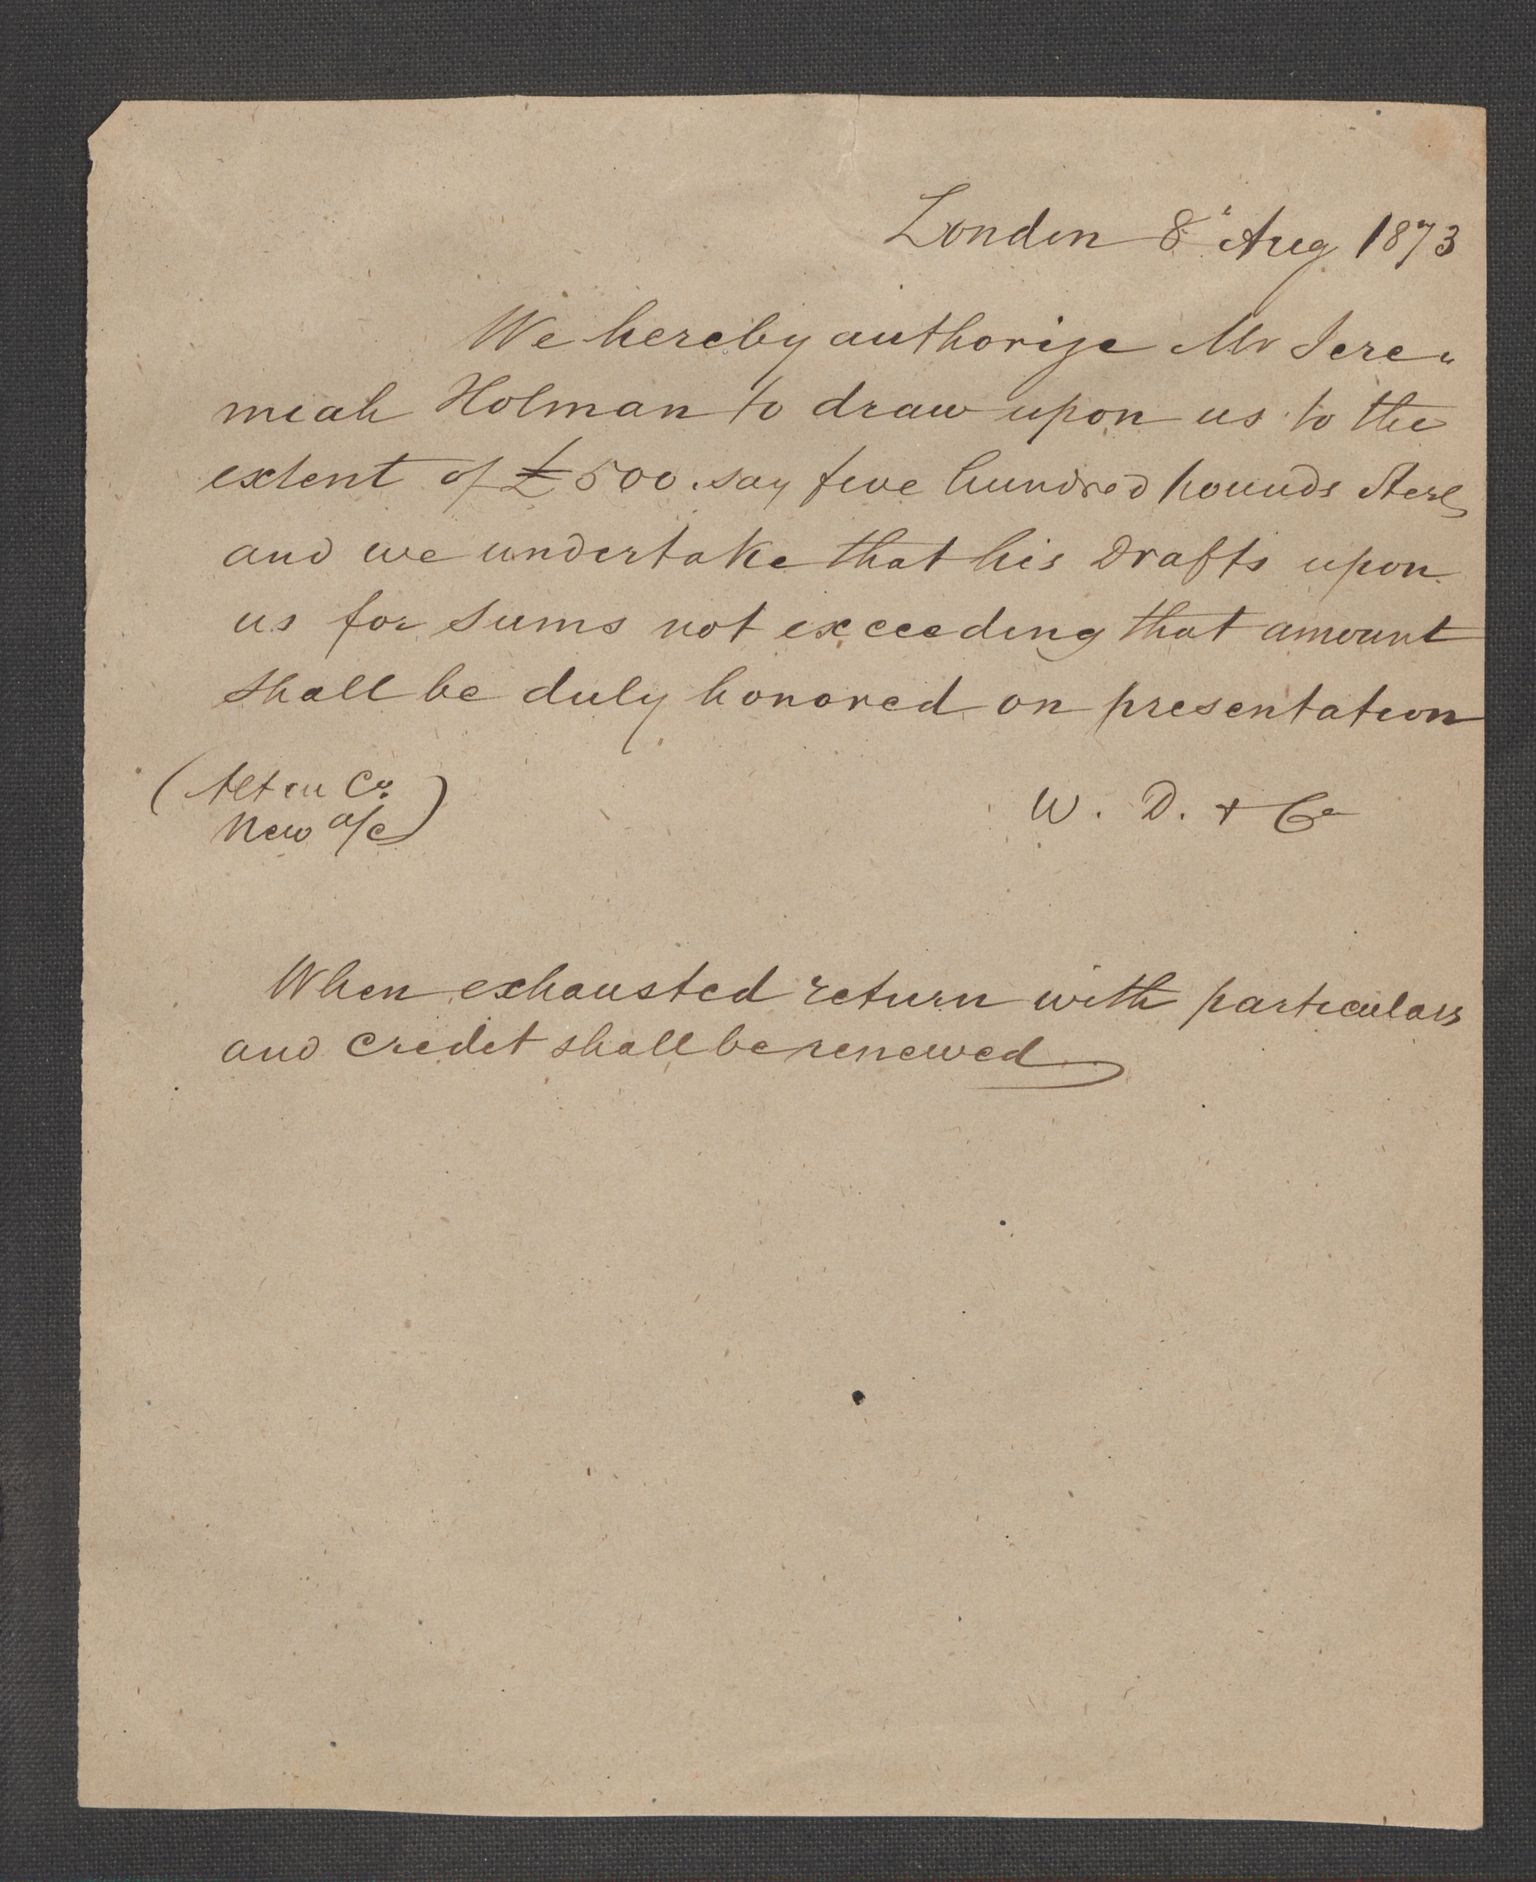 London 8' Aug 1873
We hereby authorize Mr Jere„
miah Holman to draw upon us to the
extent of £500. say five hundred pounds Sterl
and we undertake that his Drafts upon
us for sums not exceeding that amount
shall be duly honored on presentation
(Alten Co.
New a/c)
W. D. + Co
When exhausted return with particulars
and credit shall be renewed